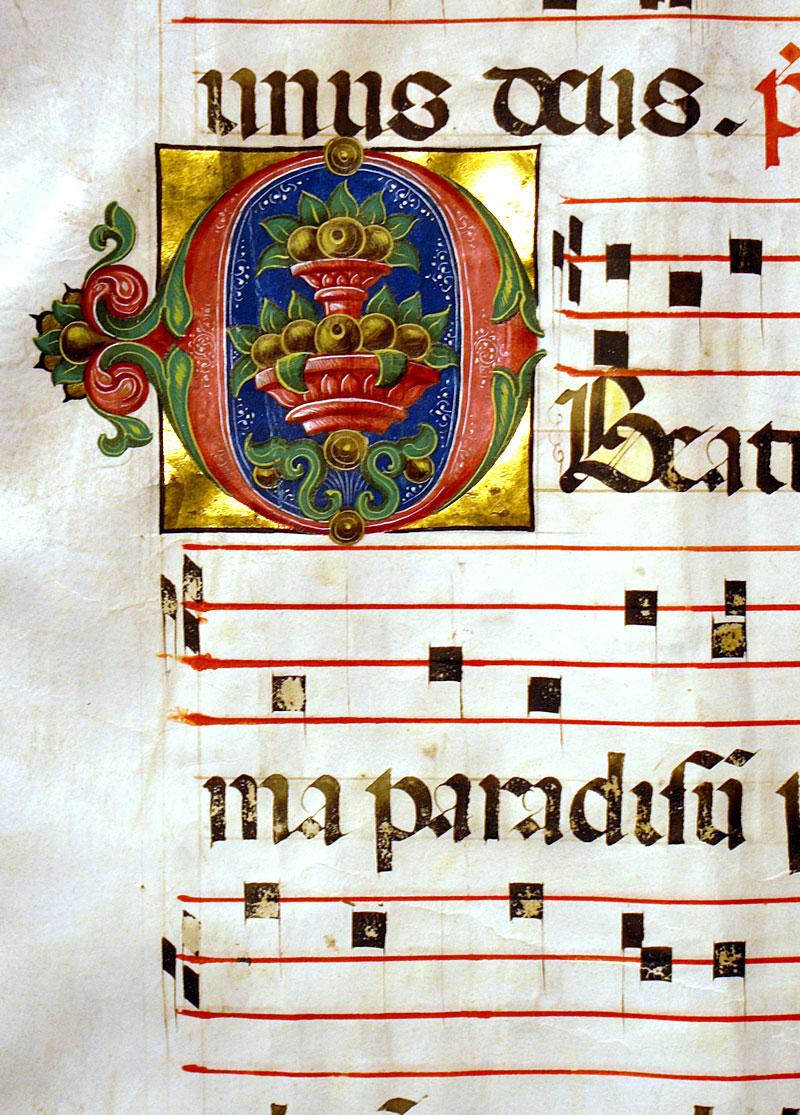 unus deus. p̃
O Beatu
ma paradisū p